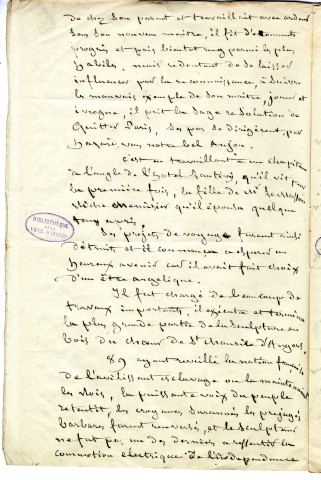 de chez son parent et travaillait avec ardeur
sous son nouveau maitre, il fit d'étonnants
progrès et pris bientot rang parmi les plus
habils, mais redoutant de se laisser
influencer par la reconnaissance, à suivre
le mauvais exemple de son maitre, joueur et
ivrogne, il prit la sage resolution de
quitter Paris, ses pas se dirigèrent, par
hazard, vers notre bel anjou.
c'est en travaillant a un chapiteau
a l'angle de l'hotel Lantivi, qu'il vit pour
la première fois, la fille de Mr
riche menuisier qu'il épousa quelque
tems après.
Ses projets de voyage furent ainsi
détruit et il commença a esperer un
heureux avenir car il avait fait choix
d'un être angelique.
Il fut chargé de beaucoup de
travaux importants, il exécuta et termina
la plus grande partie de la sculpture en
bois du chœur de St Maurile d'Angers.
89 ayant reveillé la nation française
de l'avilissant esclavage ou la maintenaient
les Rois, la puissante voix du peuple
retentit, les croyances surannées les préjugés
barbares furent renversés, et le sculpteur
ne fut pas un des derniers a ressentir la
commotion electrique de l'independance
BIBLIOTHÈQUE
DE LA
VILLE D'ANGERS